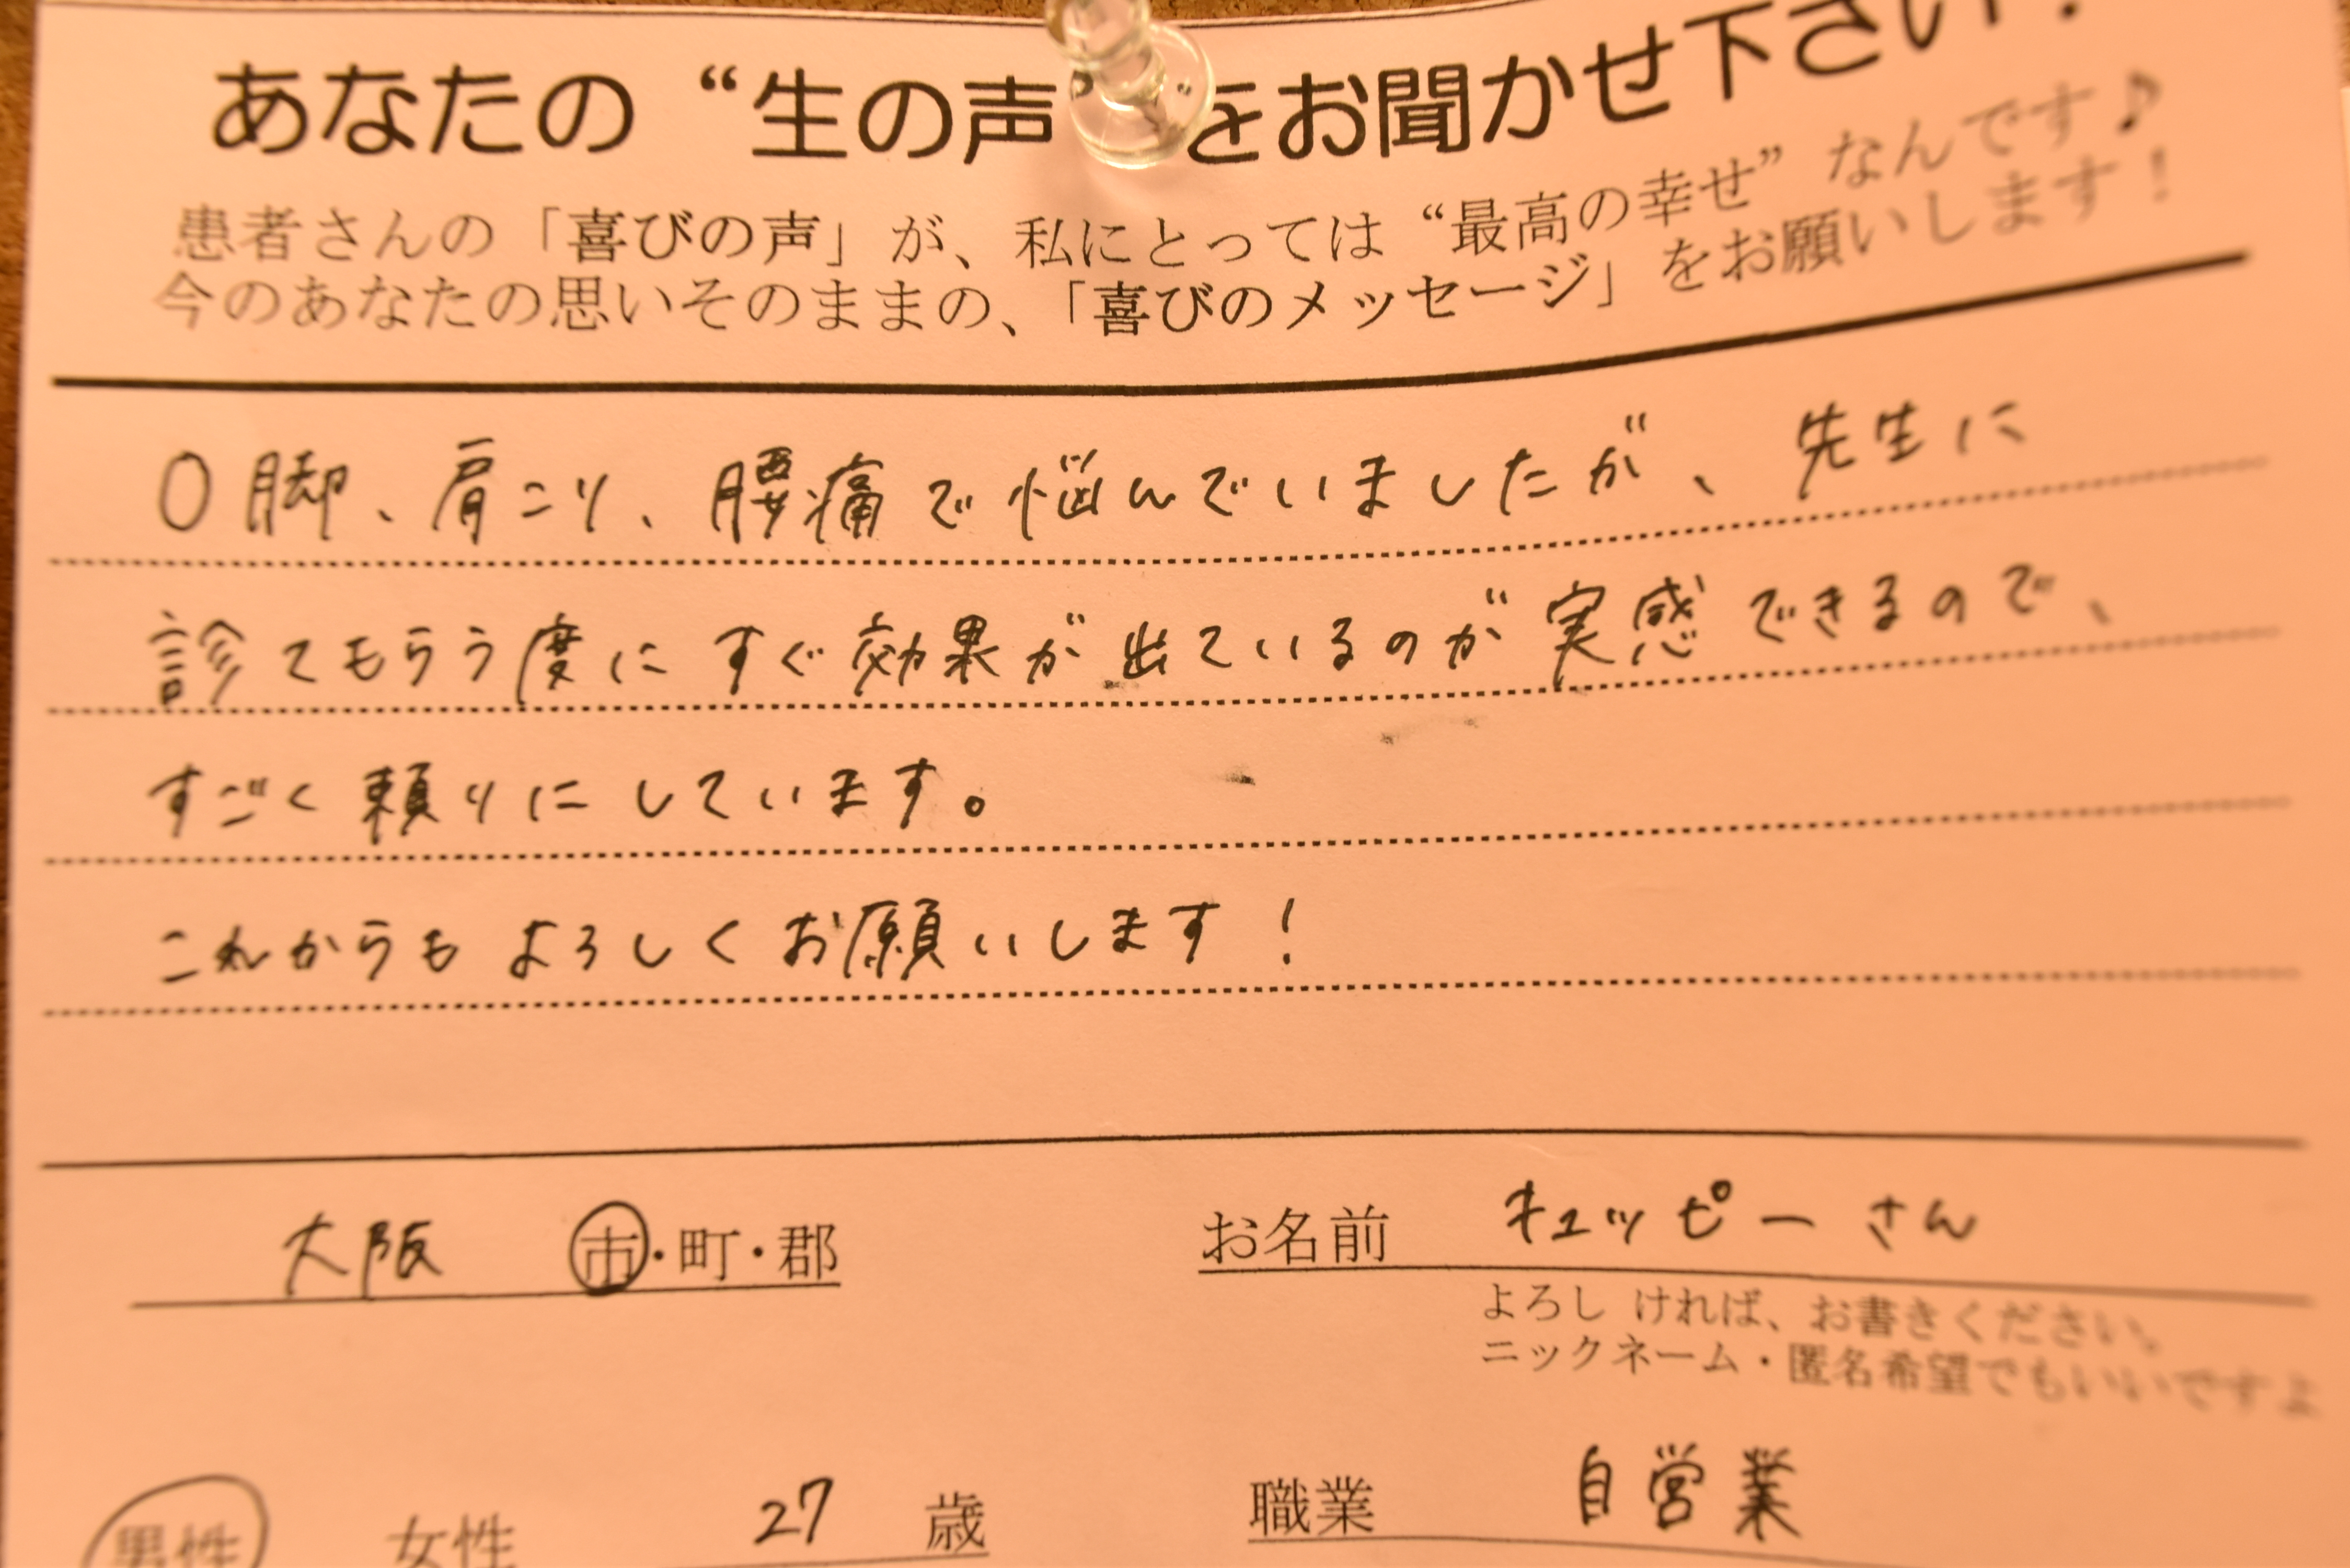 あなたの“生の声”をお聞かせ下さい！
患者さんの「喜びの声」が、私にとっては“最高の幸せ”なんです♪
今のあなたの思いそのままの、「喜びのメッセージ」をお願いします！
O脚、肩こり、腰痛で悩んでいましたが、先生に
診てもらう度にすぐ効果が出ているのが実感できるので、
すごく頼りにしています。
これからもよろしくお願いします！
大阪 市・町・郡 お名前 キュッピーさん
よろしければ、お書きください。
ニックネーム・匿名希望でもいいですよ
男性 女性 27 歳 職業 自営業